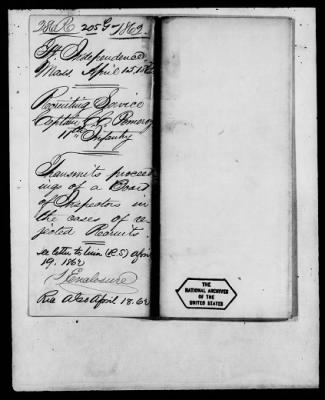 286 R 205 G-1862.
Ft. Independence
Mass April 15.
Recruiting Service
Captain Pomeroy
11th Infantry
Transmits proceed
ings of a Board
of Inspectors in
the cases of re
jected Recruits.
see letter to him (R.S) April
19. 1862
1 Enclosure
Rec A.G.O April 18. 62
THE
NATIONAL ARCHIVES
OF THE
UNITED STATES